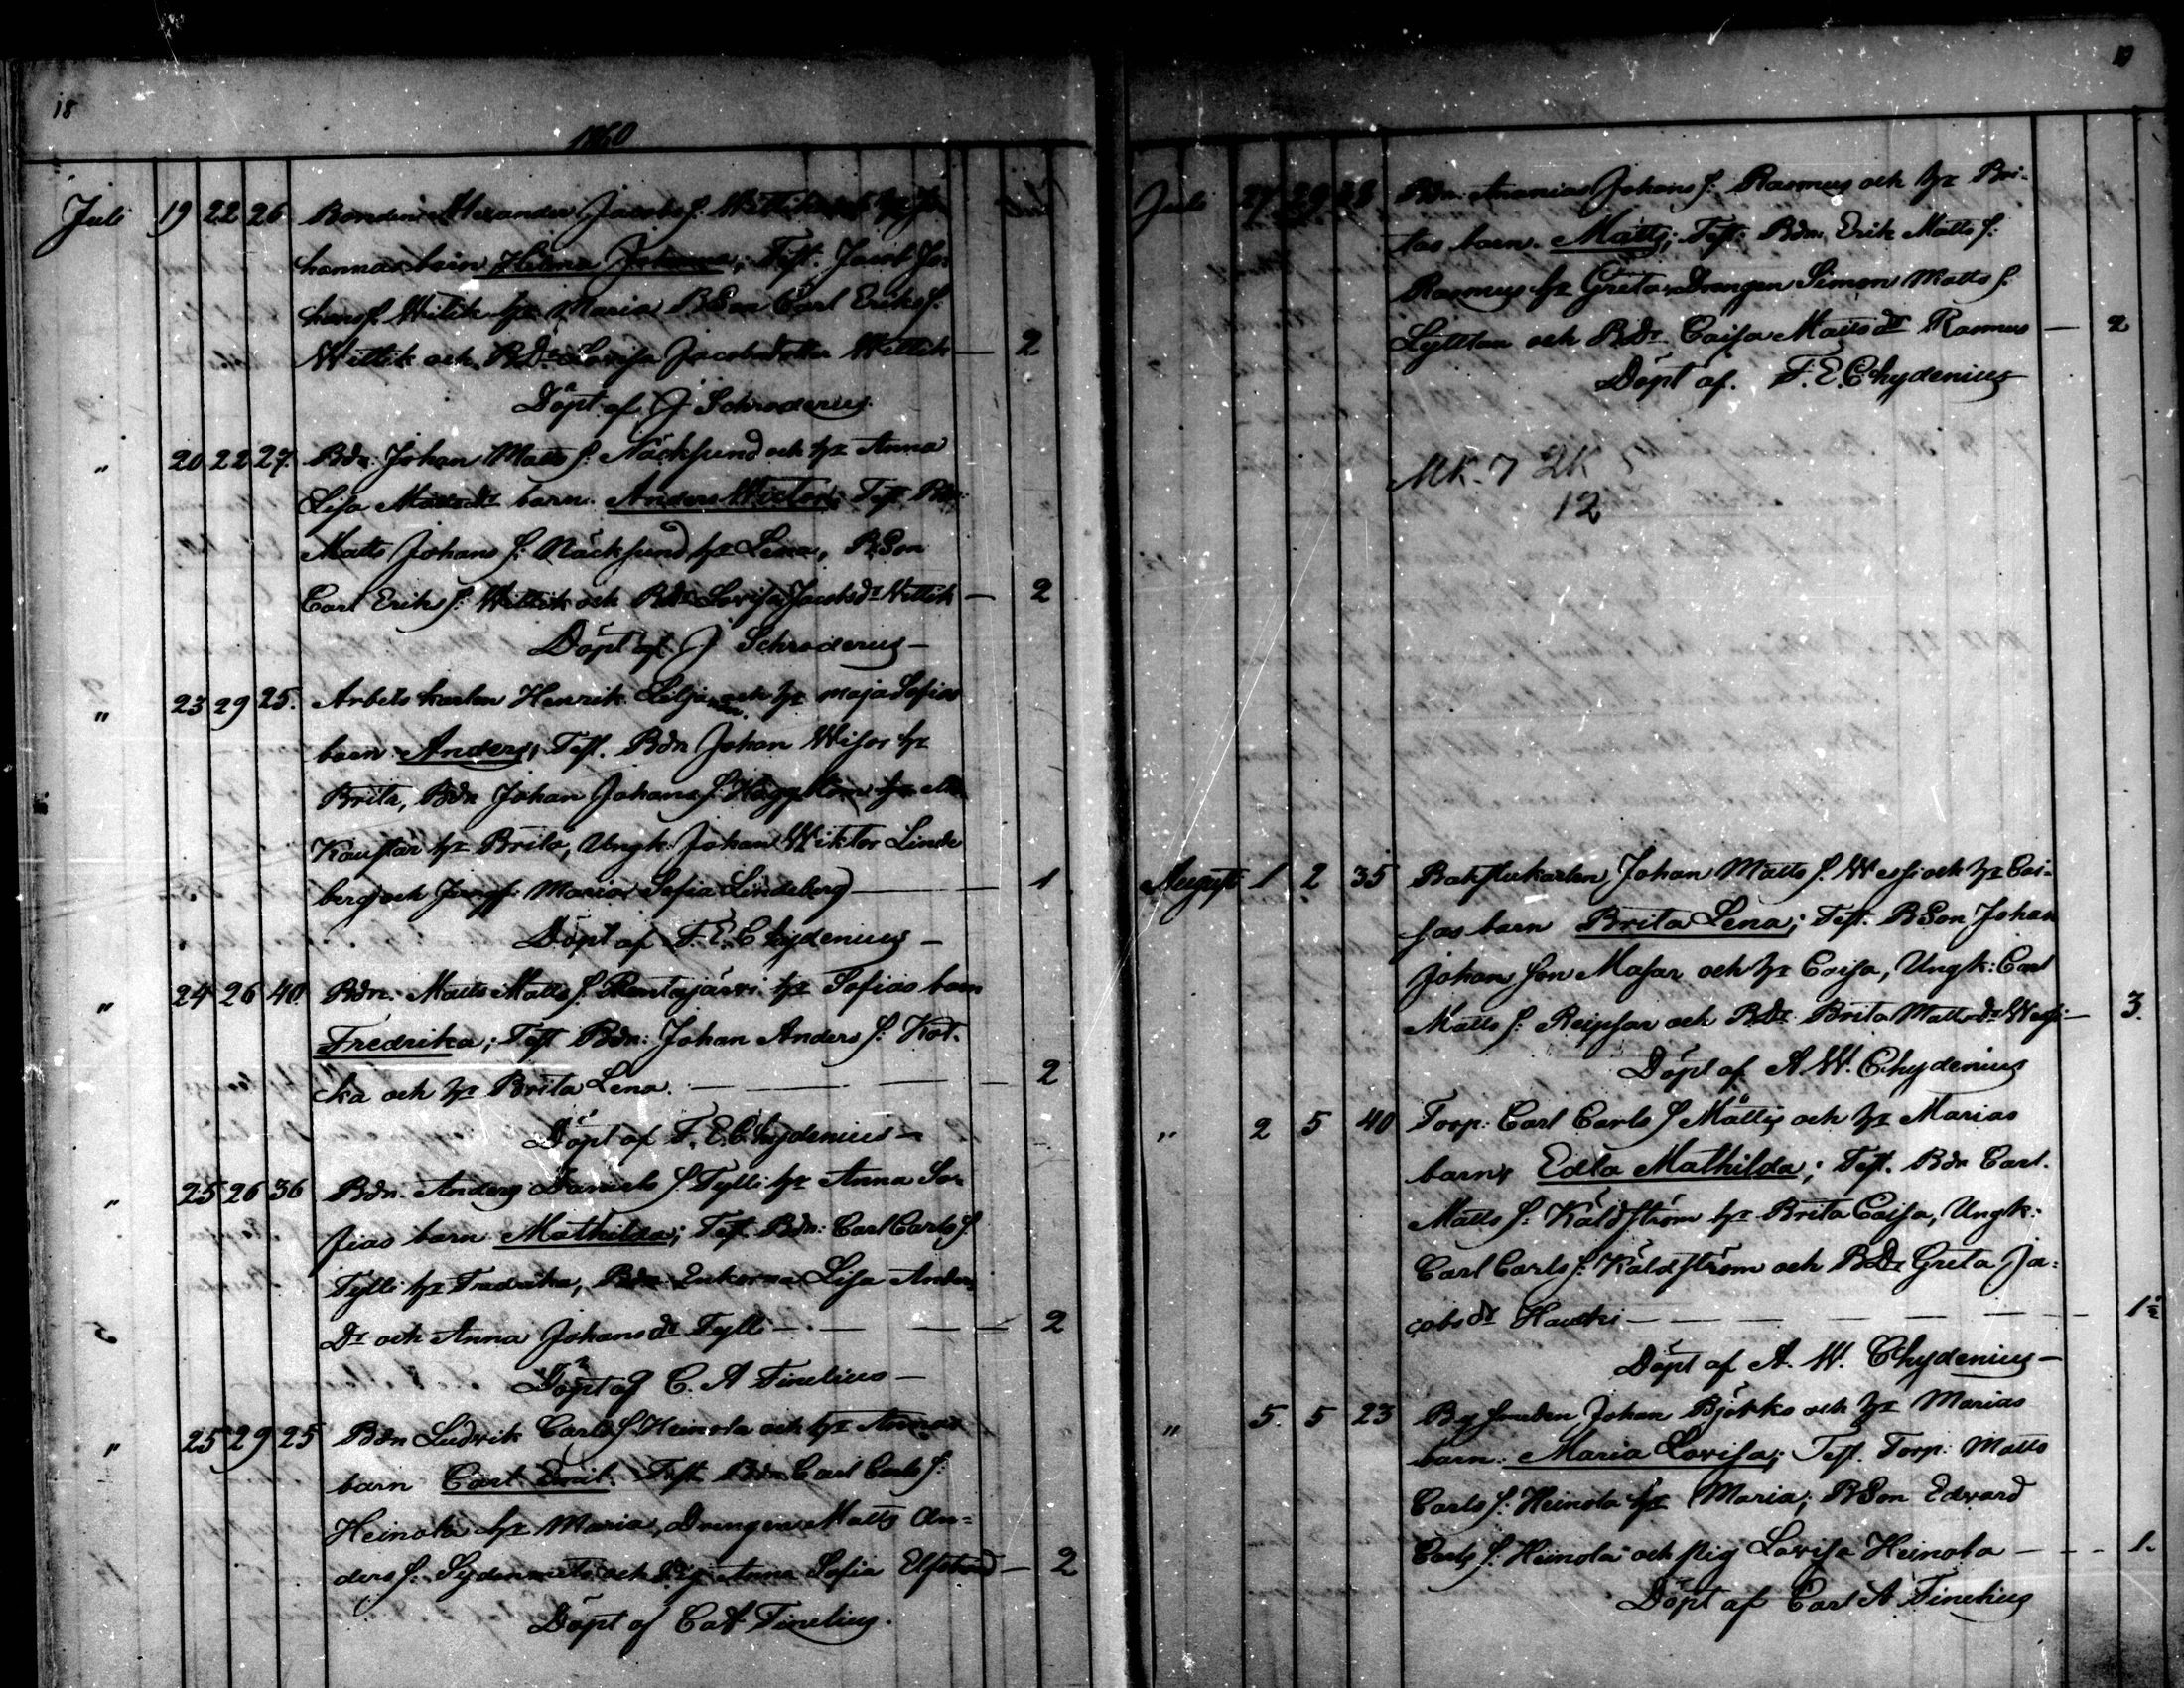 18
1860
Juli 19 22 26 Bonden Alexander Jacobs s. Wittik och h: Jo-
hannas barn Johanna; Test. Jacob Jo-
hans s. Wittik h: Maria BSon Carl Eriks s.
Wittik och BDr Lovisa Jacobsdotter Wittik — 2
Döpt af J Schroderus
" 20 22 27. Bdn: Johan Matts s: Näcksund och h: Anna
Lisa Mattsdr barn. Anders Wictor; Test. Bdn:
Matts Johans s: Näcksund h: Lena, BSon
Carl Eriks s: Wittik och BDr Lovisa Jacobsdr Wittik — 2
Döpt af J Schroderus —
" 23 29 25. Arbetskarlen Henrik Lilja och h: Maja Sofias
barn: Anders; Test. Bdn Johan Wisor h:
Brita, Bdn Johan Johans s.
Kaustar h: Brita, Ungk: Johan Wiktor Linde
berg och Jungf: Maria Sofia Lindeberg — 1
Döpt af F. E. Chydenius —
" 24 26 40. Bdn: Matts Matts s. Rentajärvi h: Sofias barn
Fredrika; Test Bdn: Johan Anders s: Kot-
ka och h: Brita Lena. — — — 2
Döpt af F. E. Chydenius —
" 25 26 36 Bdn. Anders Daniels s. Tylli h: Anna So-
fias barn Mathilda; Test. Bdn: Carl Carls s.
Tylli h: Fredrika, Enkorna Lisa Anders
Dr och Anna Johansdr Tylli — — — 2
Döpt af C. A Finelius —
" 25 29 25 Bdn Ludvik Carls s Heinola och h: Annas
barn Carl Emil. Test. Bdn Carl Carls s:
Heinola h: Maria, Drengen Matts An-
ders s: och Anna Sofia — 2
Döpt af C A Finelius.
Juli 27 29 28 Bdn: Ananias Johans s: Rasmus och h: Bri-
tas barn. Matts; Test: Bdn: Erik Matts s:
Rasmus h: Greta, Drengen Simon Matts s.
och BDr Caisa Mattsdr Rasmus — 2
Döpt af. F. E. Chydenius
Mk. 7 2K 5
12
August 1 2 35 Johan Matts s. Wessi och h: Cai-
sas barn Brita Lena; Test. BSon Johan
Johans son Masar och h: Caisa, Ungk: Carl
Matts s: Reipsar och BDr Brita Mattsdr Wessi — 3.
Döpt af A W. Chydenius
" 2 5 40 Torp: Carl Carls s Mattis och h: Marias
barn, Edla Mathilda; Test. Bdn Carl.
Matts s: Kåldström h: Brita Caisa, Ungk:
Carl Carls s: Kåldström och BDr Greta Ja-
cobsdr Hautki — — — 1
Döpt af A. W. Chydenius —
" 5. 5 23 Bysmeden Johan Björko och h: Marias
barn: Maria Lovisa; Test. Torp: Matts
Carls s: Heinola h: Maria; BSon Edvard
Carls s: Heinola och pig Lovisa Heinola — 1.
Döpt af Carl A Finelius